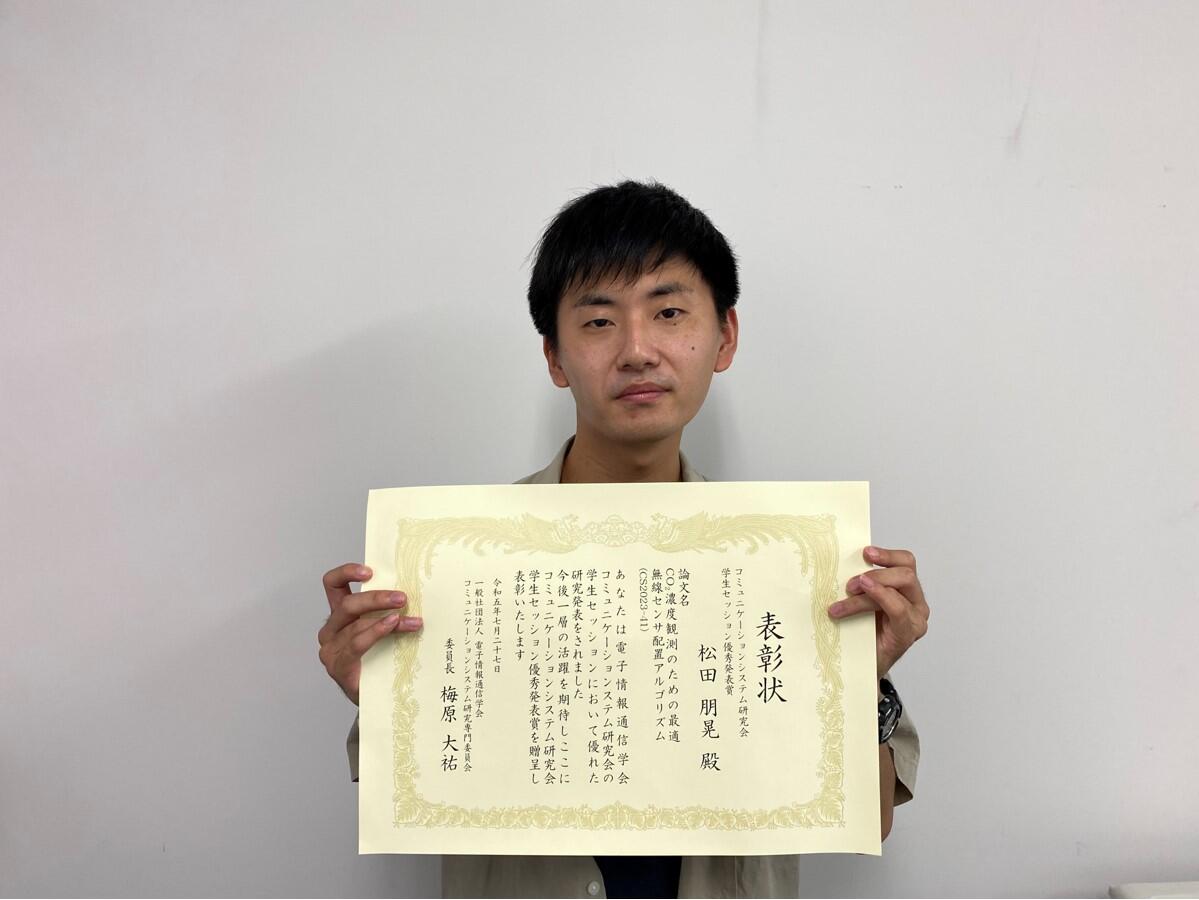 表彰状
コミュニケーションシステム研究会
学生セッション優秀発表賞
松田 朋晃 殿
論文名
CO₂濃度観測のための最適
無線センサ配置アルゴリズム
(CS2023-41)
あなたは電子情報通信学会
コミュニケーションステム研究会の
学生セッションにおいて優れた
研究発表をされました
今後一層の活躍を期待しここに
コミュニケーションシステム研究会
学生セッション優秀発表賞を贈呈し
表彰いたします
令和五年七月二十七日
一般社団法人 電子情報通信学会
コミュニケーションシステム研究専門委員会
委員長 梅原 大祐